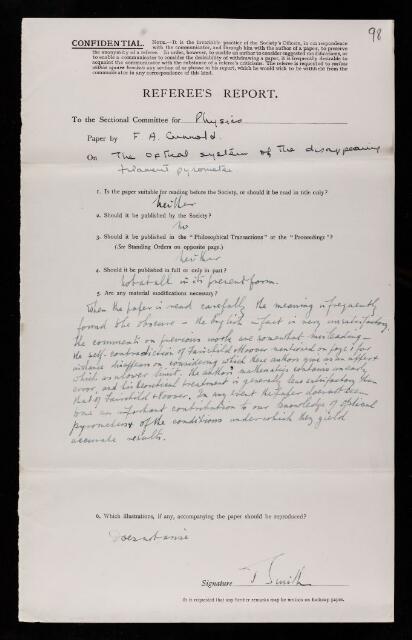 98
CONFIDENTIAL. NOTE.—It is the invariable practice of the Society's Officers, in correspondence
with the communicator, and through him with the author of a paper, to preserve
the anonymity of a referee. In order, however, to enable an author to consider suggested modifications, or
to enable a communicator to consider the desirability of withdrawing a paper, it is frequently desirable to
acquaint the communicator with the substance of a referee's criticisms. The referee is requested to enclose
within square brackets any section of or phrase in his report, which he would wish to be withheld from the
communicator in any correspondence of this kind.
REFEREE'S REPORT.
To the Sectional Committee for Physics
Paper by F. A. Cunnold.
On The optical system of the disappearing
filament pyrometer
1. Is the paper suitable for reading before the Society, or should it be read in title only?
Neither
2. Should it be published by the Society?
No
3. Should it be published in the "Philosophical Transactions" or the "Proceedings"?
(See Standing Orders on opposite page.)
Neither
4. Should it be published in full or only in part?
Not at all in its present form.
5. Are any material modifications necessary?
When the paper is read carefully the meaning is frequently
found to be obscure – the English in fact is very unsatisfactory.
The comments on previous work are somewhat misleading –
the self-contradiction of Fairchild & Hoover mentioned on page 1 for
instance disappears on considering which these authors give as an upper &
which as a lower limit. The author's mathematics contains an early
error, and his theoretical treatment is generally less satisfactory than
that of Fairchild & Hoover. In any event the paper does not seem
to me an important contribution to our knowledge of optical
pyrometers & of the conditions under which they yield
accurate results.
6. Which illustrations, if any, accompanying the paper should be reproduced?
Does not arise
Signature T Smith
It is requested that any further remarks may be written on foolscap paper.